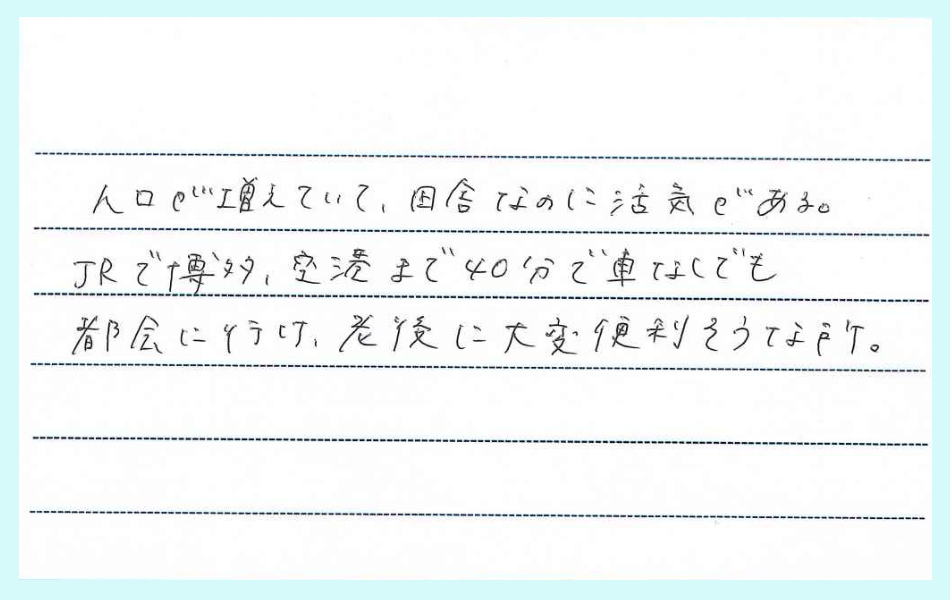 人口が増えていて、田舎なのに活気がある。
JRで博多、空港まで40分で車なしでも
都会に行け、老後に大変便利そうな所。